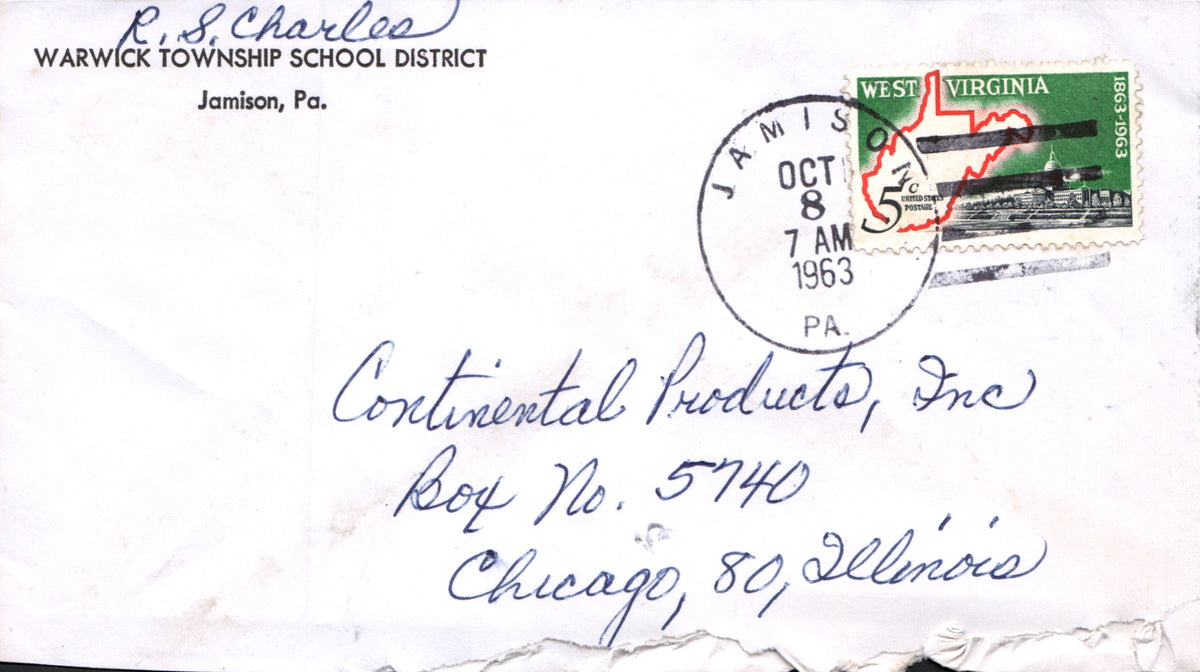 R. S. Charles
WARWICK TOWNSHIP SCHOOL DISTRICT
Jamison, Pa.
WEST VIRGINIA
1863-1963
5c
UNITED STATES
POSTAGE
JAMISON
OCT
8
7 AM
1963
PA.
Continental Products, Inc
Box No. 5740
Chicago, 80, Illinois